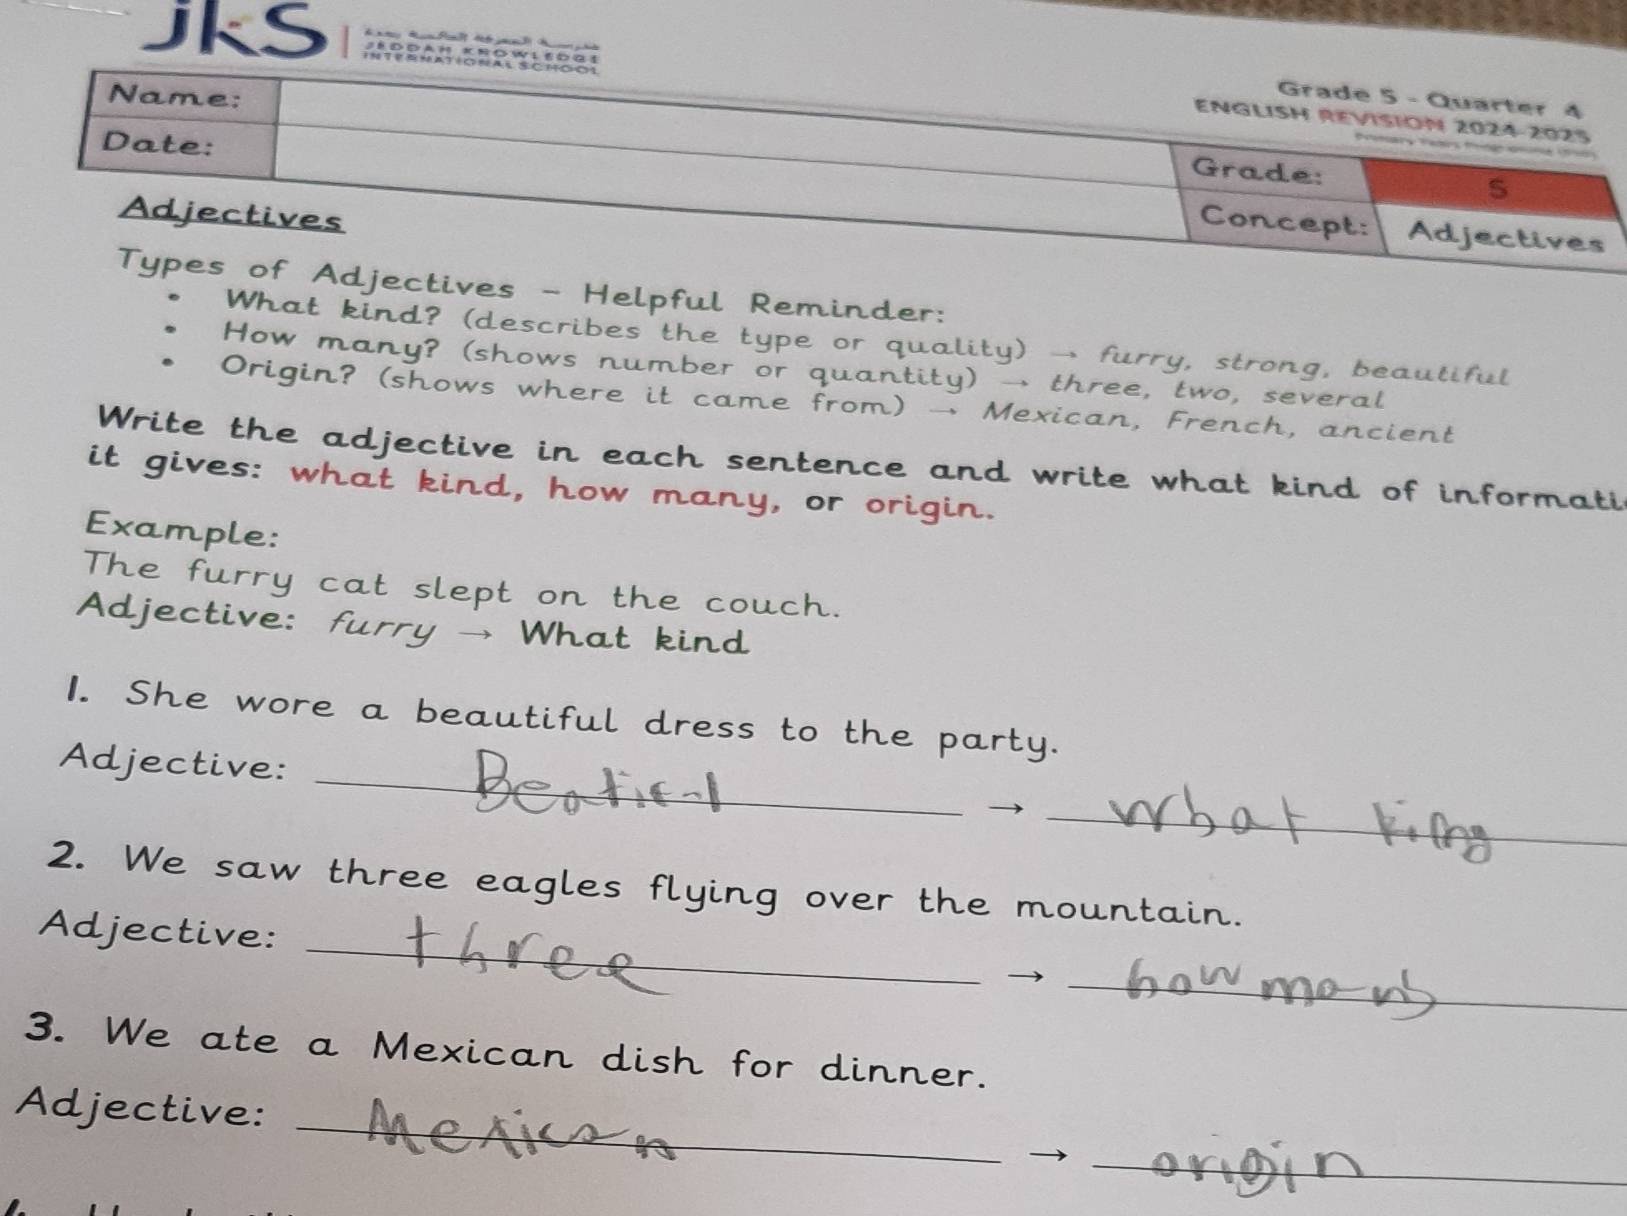 jks
JEDDAH KNOWLEDGE
INTERNATIONAL SCHOOL
Grade 5 - Quarter 4
ENGLISH REVISION 2024-2025
Name:
Date:
Grade: 5
Concept: Adjectives
Adjectives
Types of Adjectives - Helpful Reminder:
• What kind? (describes the type or quality) → furry, strong, beautiful
• How many? (shows number or quantity) → three, two, several
• Origin? (shows where it came from) → Mexican, French, ancient
Write the adjective in each sentence and write what kind of informati
it gives: what kind, how many, or origin.
Example:
The furry cat slept on the couch.
Adjective: furry → What kind
1. She wore a beautiful dress to the party.
Adjective: → what
2. We saw three eagles flying over the mountain.
Adjective: three → how many
3. We ate a Mexican dish for dinner.
Adjective: Mexican → origin